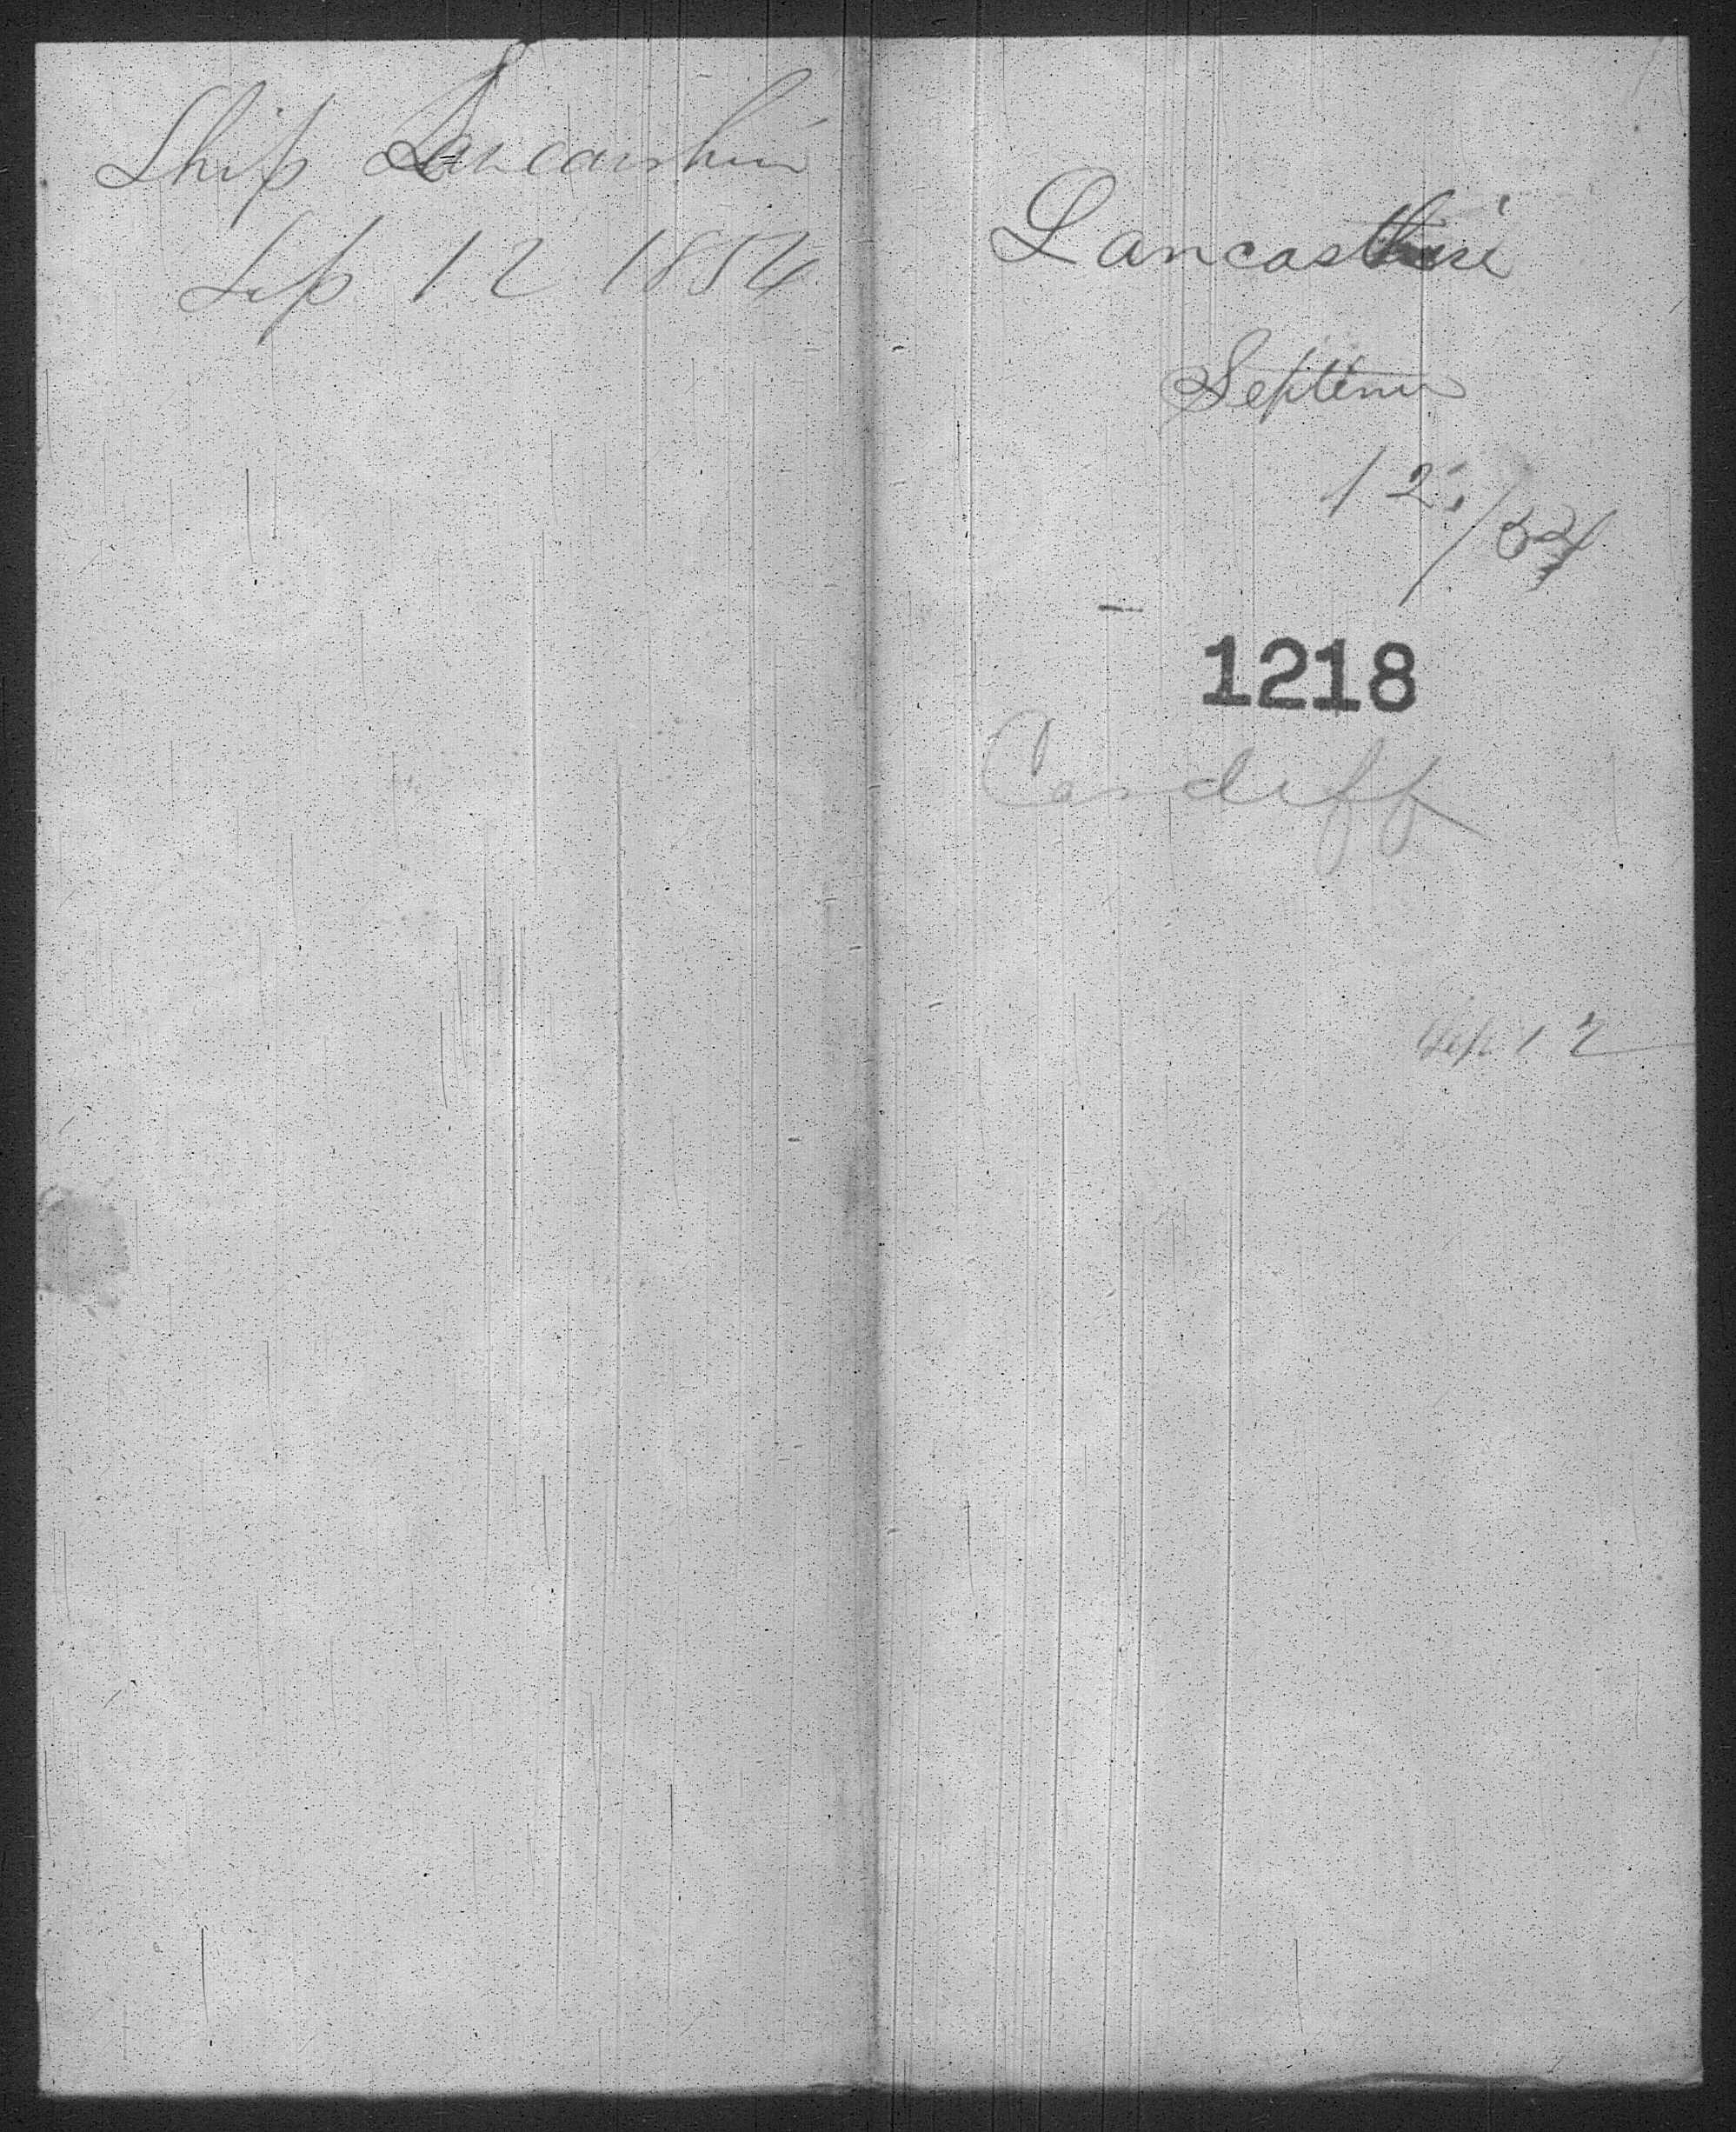 Ship Lancashire
Sep 12 1854
Lancashire
Septem
12/54
1218
Cardiff
Sep 12